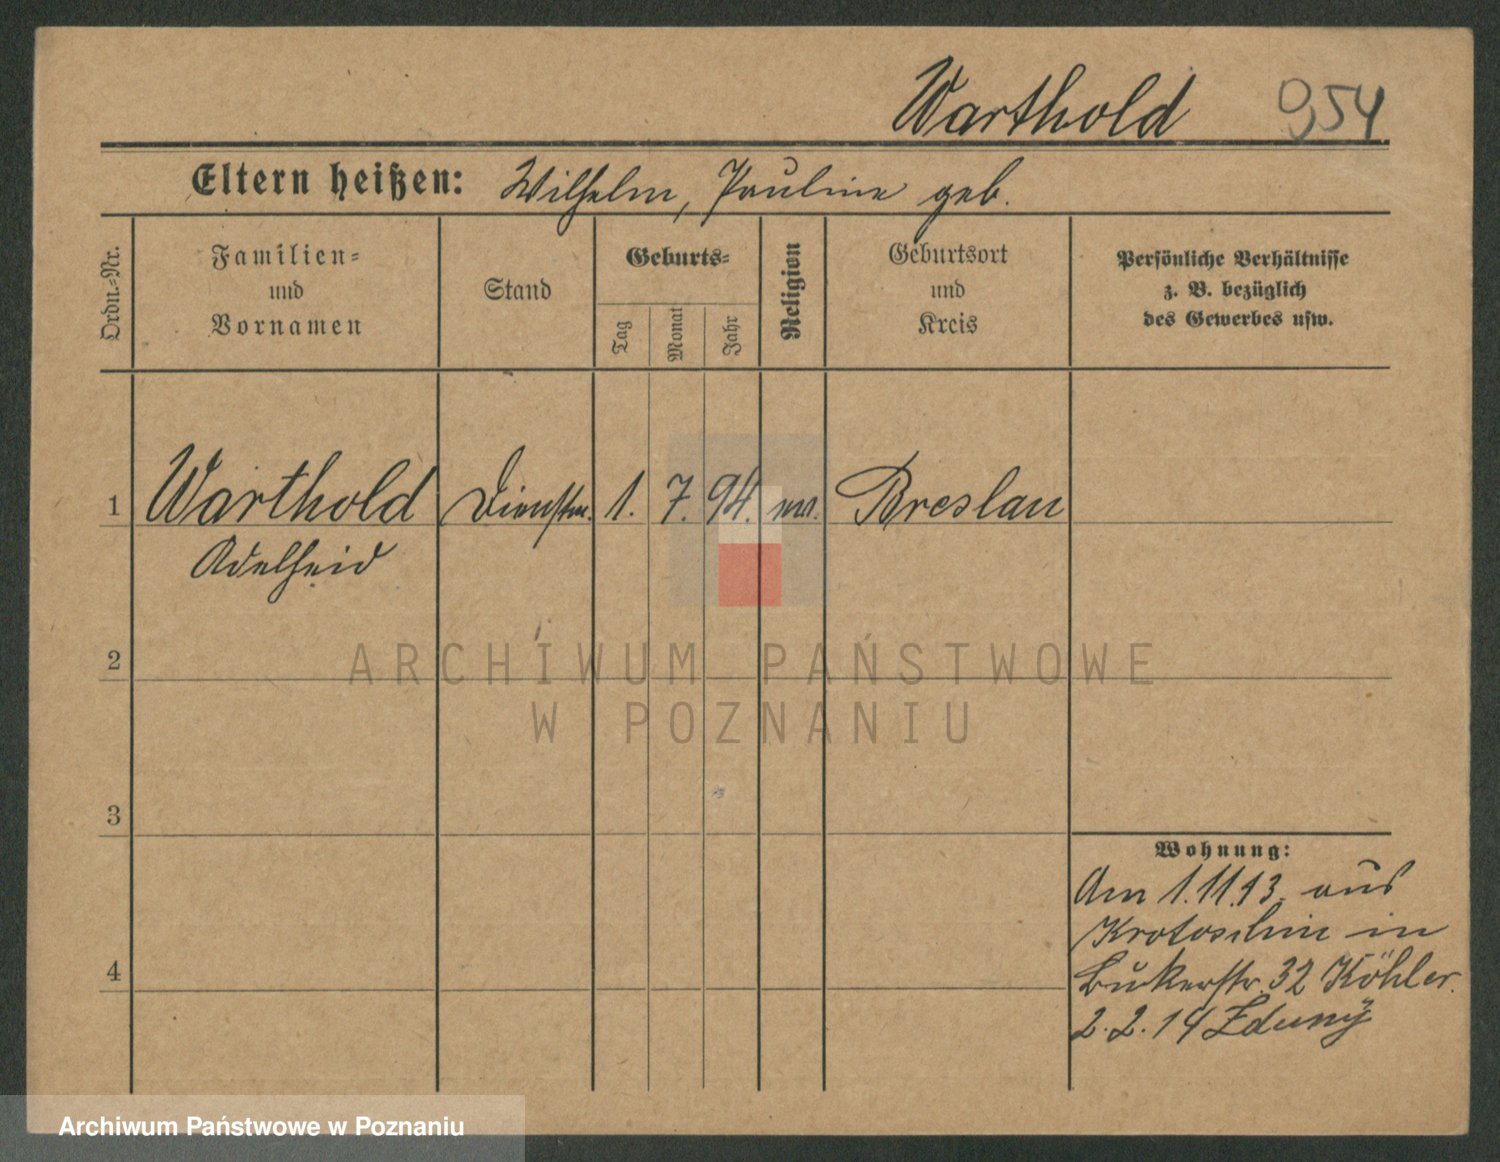 Warthold 954
Eltern heißen: Wilhelm, Pauline geb.
Ordn.-Nr.
Familien-
und
Vornamen
Stand
Geburts-
Tag
Monat
Jahr
Religion
Geburtsort
und
Kreis
Persönliche Verhältnisse
z. B. bezüglich
des Gewerbes usw.
1 Warthold Dienstm. 1. 7. 94. ev. Breslau
Adelheid
2
3
4
Wohnung:
Am 1.11.13. aus
Krotoschin in
Bukerstr. 32 Köhler.
2.2.14 Zduny
ARCHIWUM PAŃSTWOWE
W POZNANIU
Archiwum Państwowe w Poznaniu